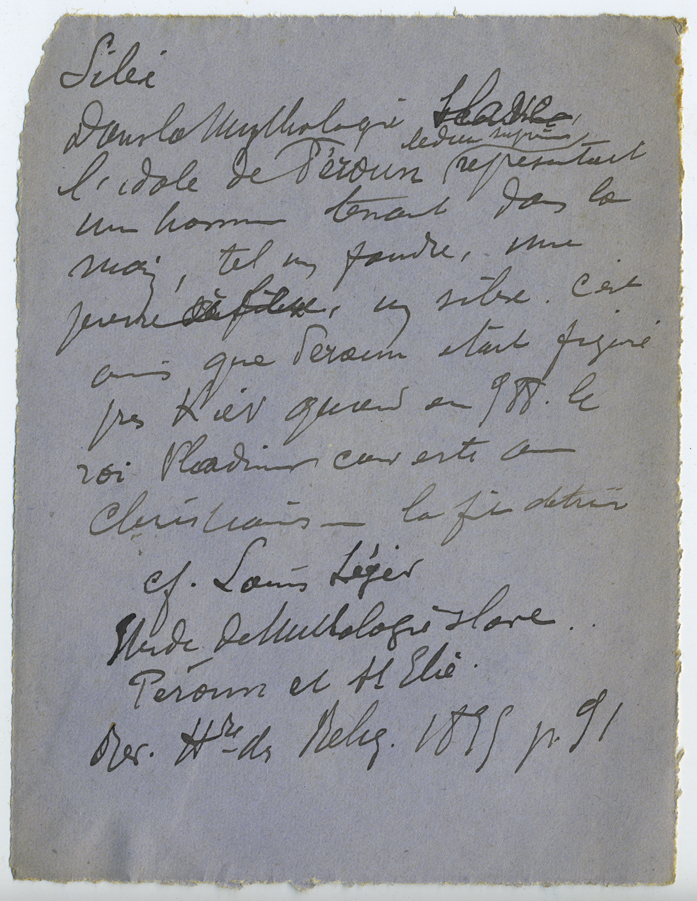 Silex
Dans la Mythologie Slave,
le dieu suprême
l'idole de Péroun représentait
un homme tenant dans la
main, tel un foudre, une
pierre , un silex. C'est
ainsi que Peroun était figuré
près Kiev quand en 988. le
roi Vladimir converti au
Christianisme la fit détruire
cf. Louis Léger
Etude de Mythologie slave.
Péroun et St Elie.
Rev. Hre des Relig. 1895 p. 91